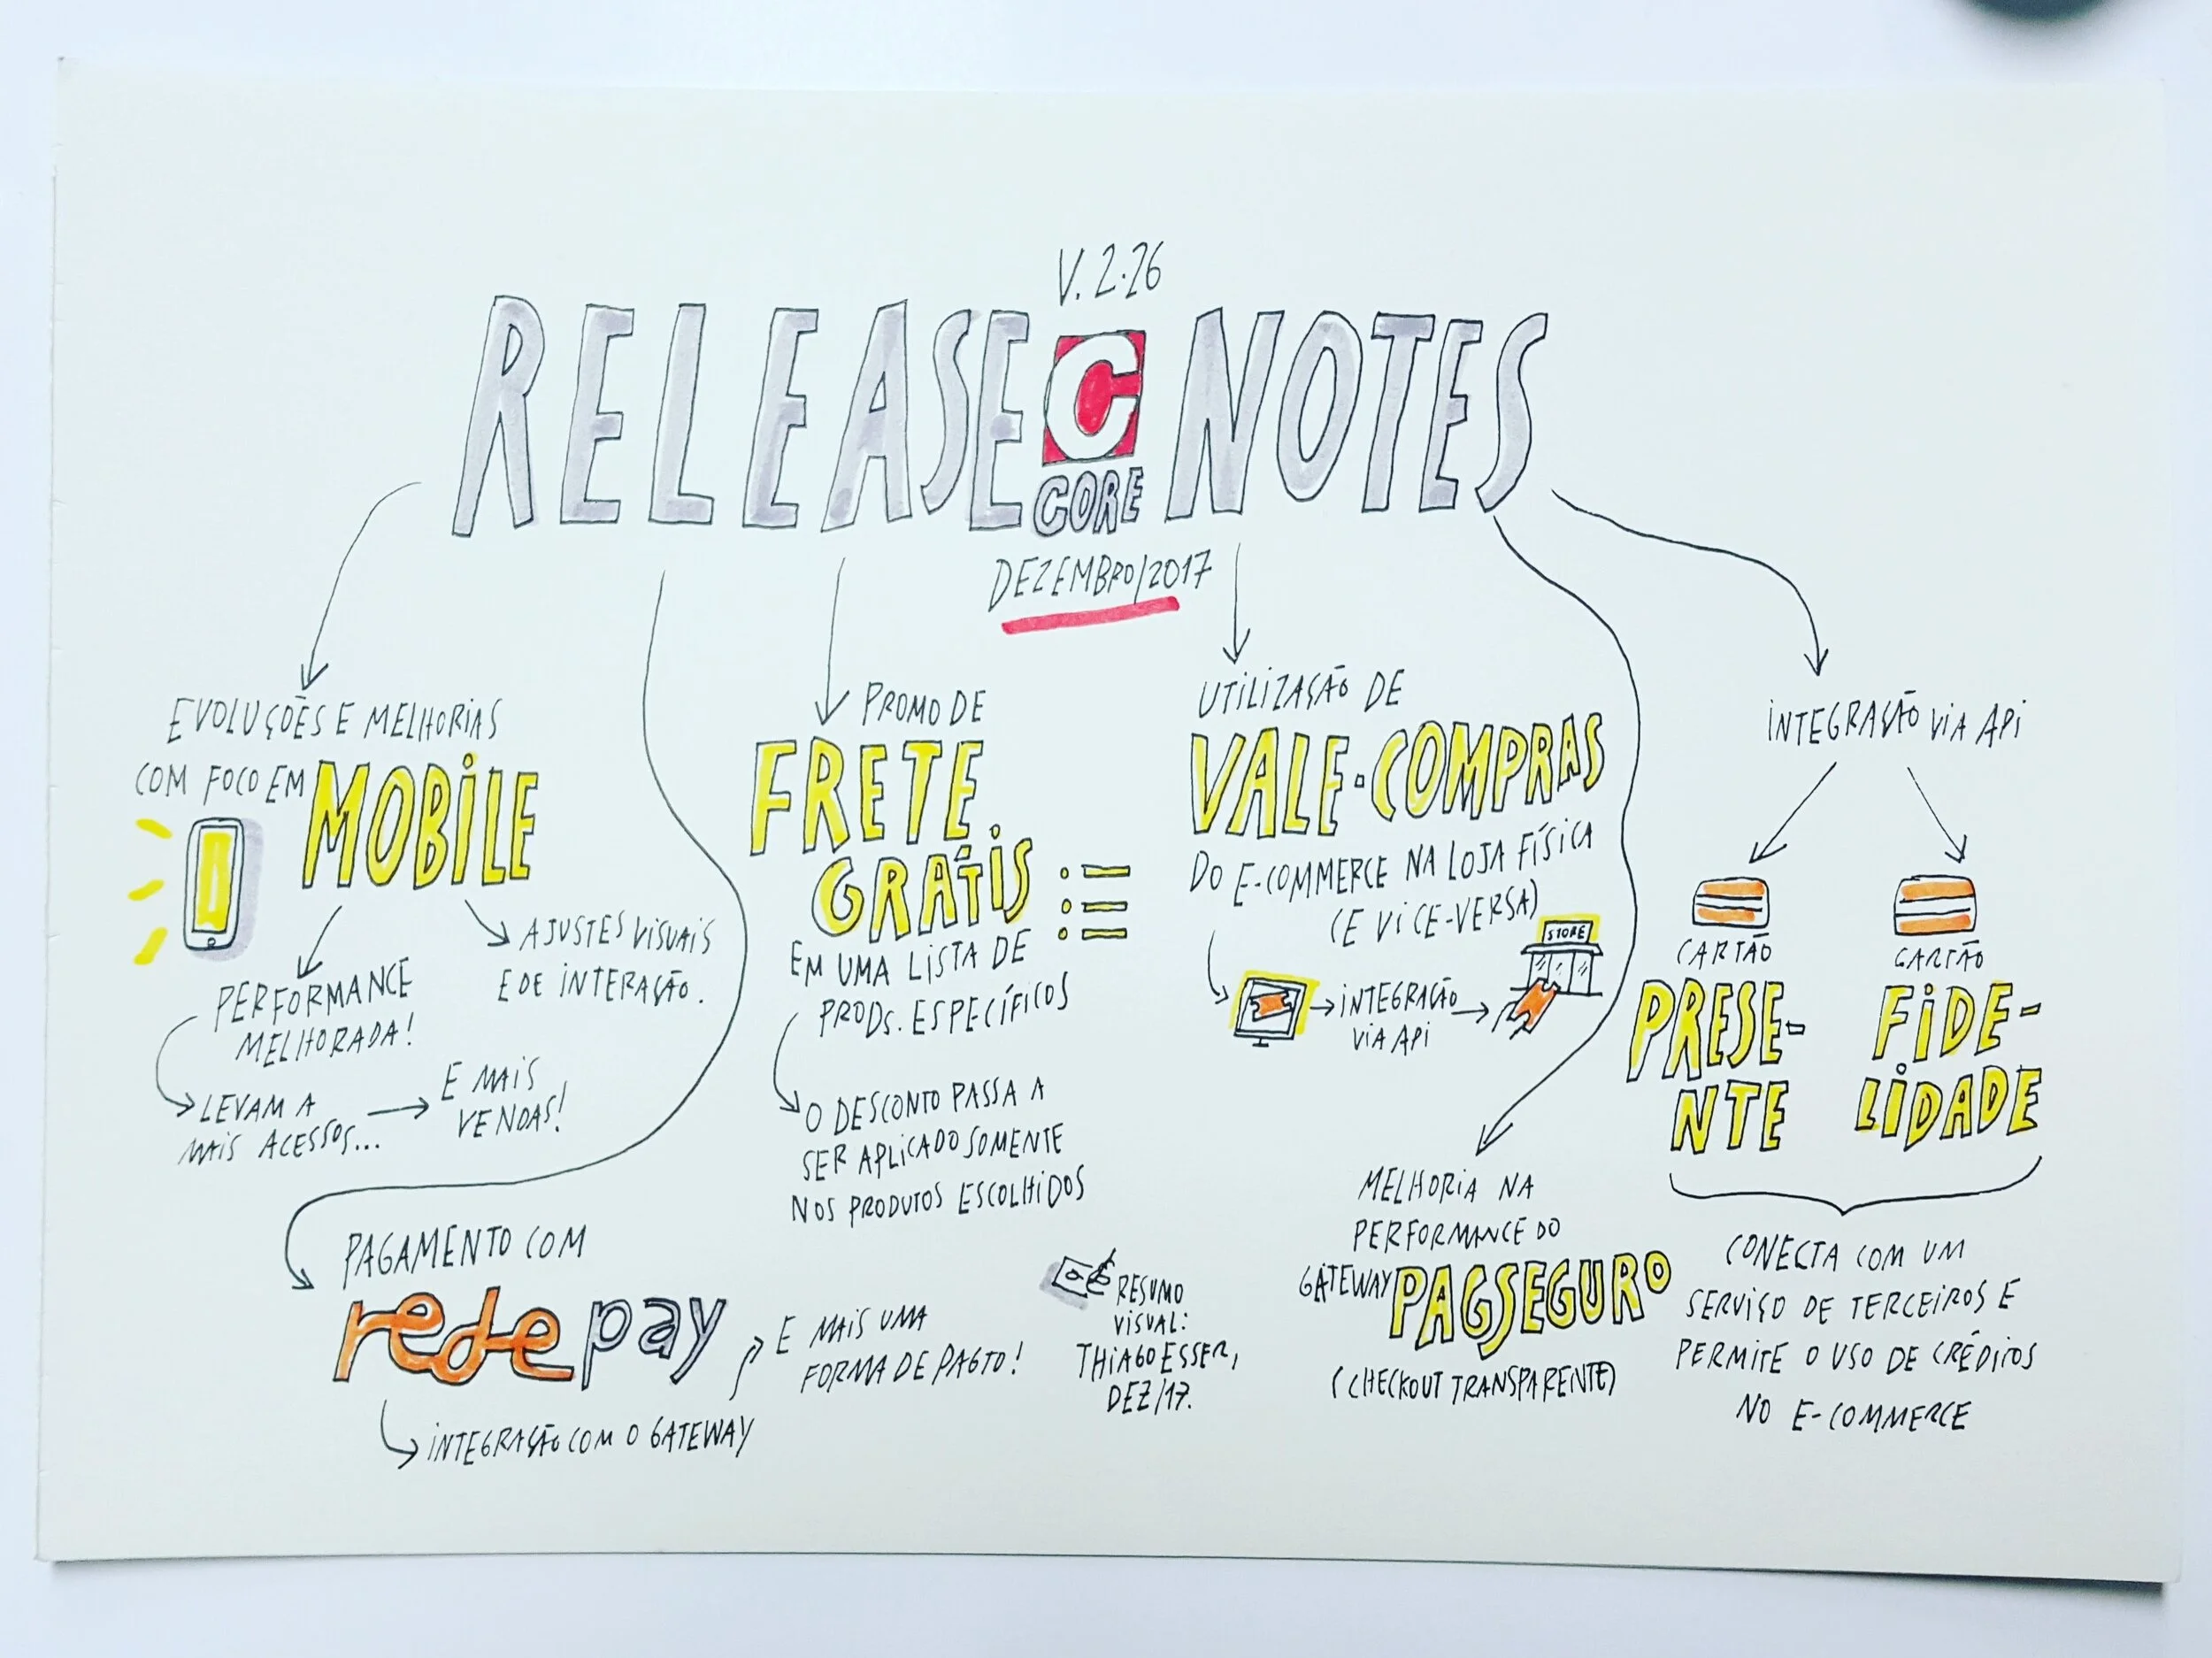 V. 2.26
RELEASE C NOTES
CORE
DEZEMBRO/2017
EVOLUÇÕES E MELHORIAS
COM FOCO EM MOBILE
PERFORMANCE
MELHORADA!
AJUSTES VISUAIS
E DE INTERAÇÃO.
LEVAM A
MAIS ACESSOS...
E MAIS
VENDAS!
PAGAMENTO COM
redepay
INTEGRAÇÃO COM O GATEWAY
E MAIS UMA
FORMA DE PAGTO!
PROMO DE
FRETE
GRÁTIS
EM UMA LISTA DE
PRODS. ESPECÍFICOS
O DESCONTO PASSA A
SER APLICADO SOMENTE
NOS PRODUTOS ESCOLHIDOS
UTILIZAÇÃO DE
VALE-COMPRAS
DO E-COMMERCE NA LOJA FÍSICA
(E VICE-VERSA)
INTEGRAÇÃO
VIA API
STORE
MELHORIA NA
PERFORMANCE DO
GATEWAY PAGSEGURO
(CHECKOUT TRANSPARENTE)
INTEGRAÇÃO VIA API
CARTÃO
PRESE-
NTE
CARTÃO
FIDE-
LIDADE
CONECTA COM UM
SERVIÇO DE TERCEIROS E
PERMITE O USO DE CRÉDITOS
NO E-COMMERCE
RESUMO
VISUAL:
THIAGO ESSER,
DEZ/17.